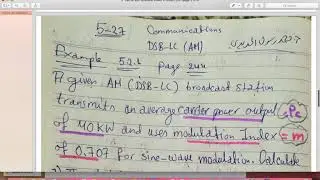 5-27 Communications
DSB-LC (AM)
Example 5.2.1 page 244
A given AM (DSB-LC) broadcast station
transmits an average carrier power output = Pc
of 40 kW and uses modulation Index = m
of 0.707 for sine-wave modulation. Calculate